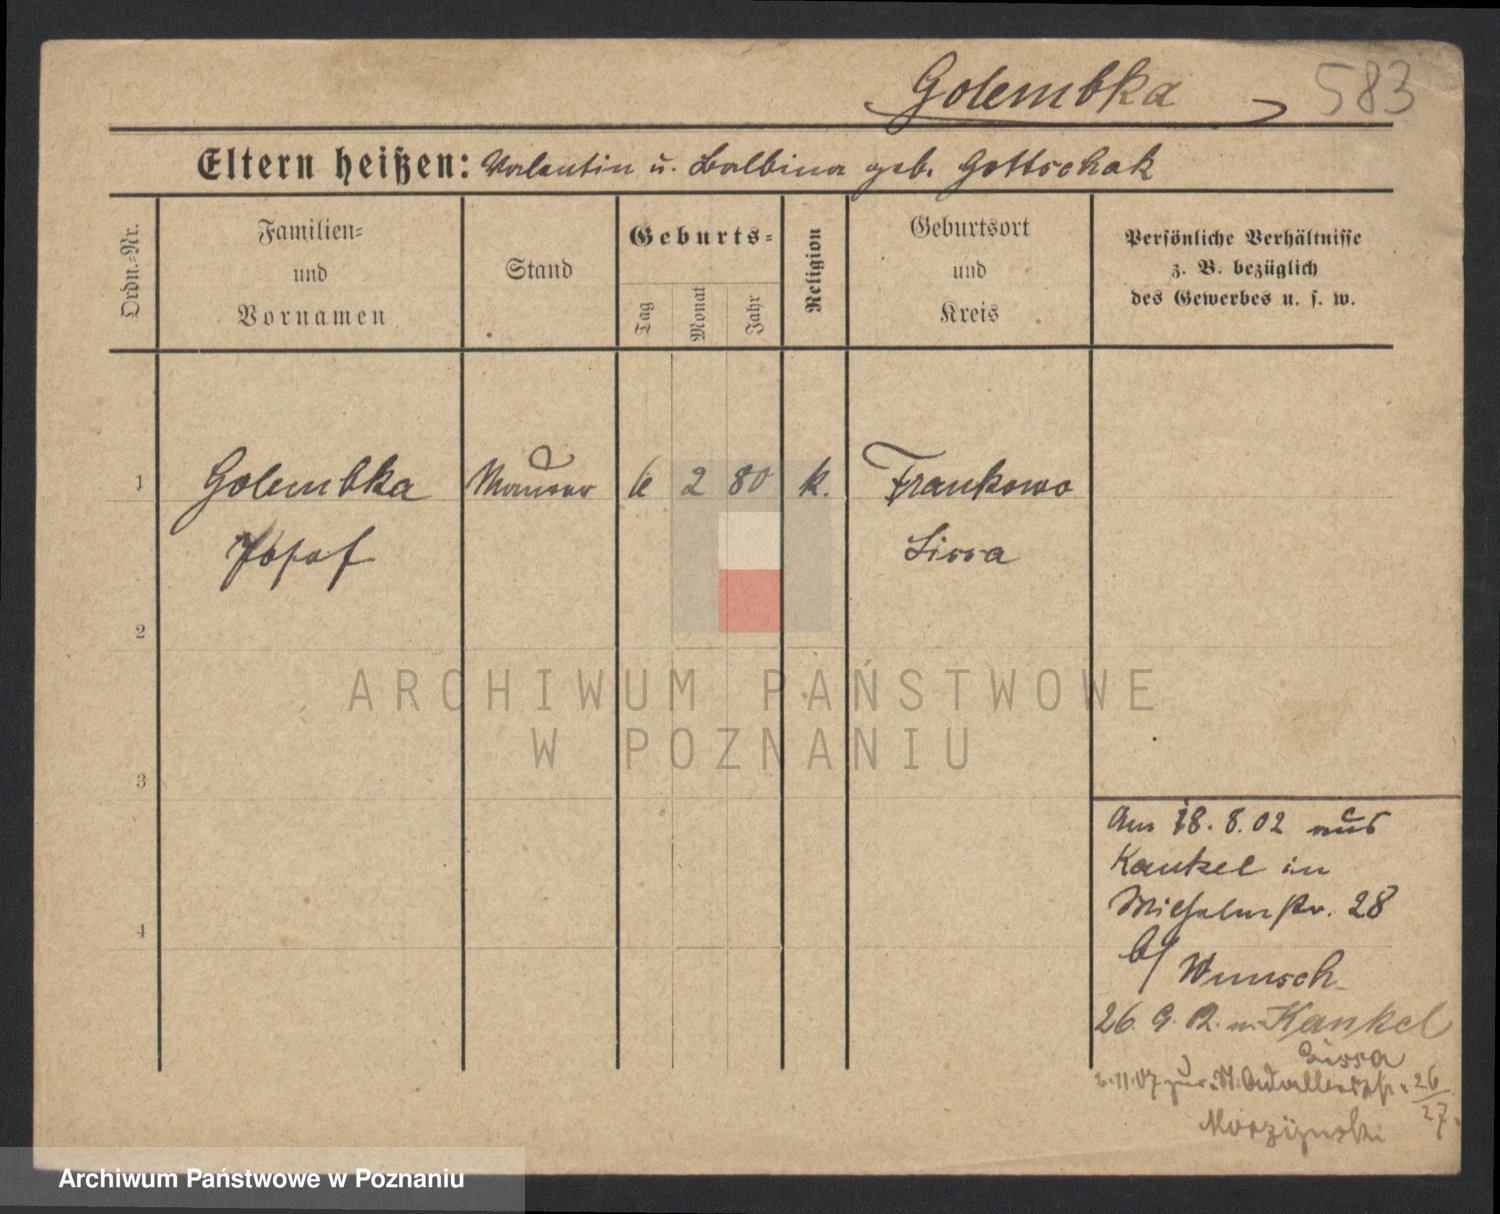 Golembka 583
Eltern heißen: Valentin u. Balbina geb. Gottschak
Ordn.-Nr.
Familien-
und
Vornamen
Stand
Geburts-
Tag
Monat
Jahr
Religion
Geburtsort
und
Kreis
Persönliche Verhältnisse
z. B. bezüglich
des Gewerbes u. s. w.
1 Golembka Maurer 6 2 80 k. Frankowo
Josef Lissa
2
3
4
Am 18.8.02 aus
Kankel in
Wilhelmstr. 28
b/ Wunsch
26. 9. 02. n. Kankel
Lissa
2.11.07 zur. 26/27.
Morzynski
ARCHIWUM PAŃSTWOWE
W POZNANIU
Archiwum Państwowe w Poznaniu